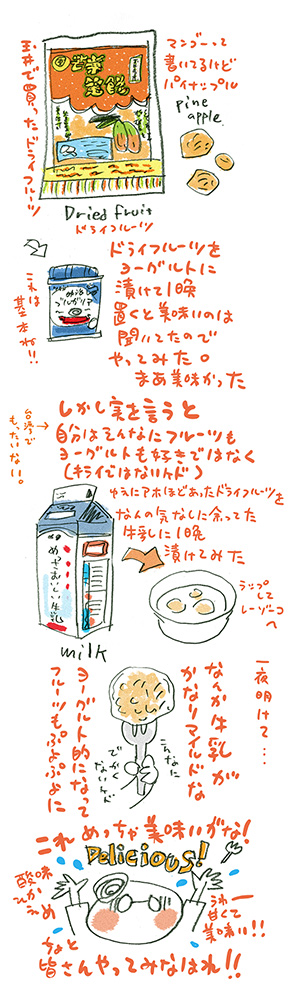 マンゴーって
書いてるけど
パイナップル
pine
apple.
玉井で買ったドライフルーツ
Dried fruit
ドライフルーツ
これは
基本ね!!
ドライフルーツを
ヨーグルトに
漬けて1晩
置くと美味いのは
聞いてたので
やってみた。
まあ美味かった
しかし実を言うと
自分はそんなにフルーツも
ヨーグルトも好きではなく
(キライではないケド)
台湾で
もったいない。
ゆえにアホほどあったドライフルーツを
なんの気なしに余ってた
牛乳に1晩
漬けてみた
めっさおいしい牛乳
milk
ラップ
して
レーゾーコ
へ
一夜明けて…
なんか牛乳が
かなりマイルドな
ヨーグルト的になって
フルーツもぷよぷよに
こんなに
でかく
ないケド
これ めっちゃ美味いがな!
Delicious!
酸味
ひかえめ
うわー
甘くて
美味い!!
ちょと
皆さんやってみなはれ!!